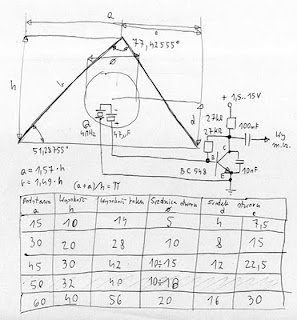 a
77,42555°
h
r
ø
o
+ 1,5..15V
Q
27kΩ
100nF
Wy
m.in.
4MHz
47µF
27kΩ
d
C
B
E
BC 548
10nF
51,28755°
a = 1,57·h
r = 1,49·h
(a+a)/h = π
Podstawa Wysokość Wysokość Średnica otworu Środek otworu
a h ø d
15 10 14 5 4 7,5
30 20 28 10 8 15
45 30 42 10÷15 12 22,5
50 32 40 10÷18
60 40 56 20 16 30